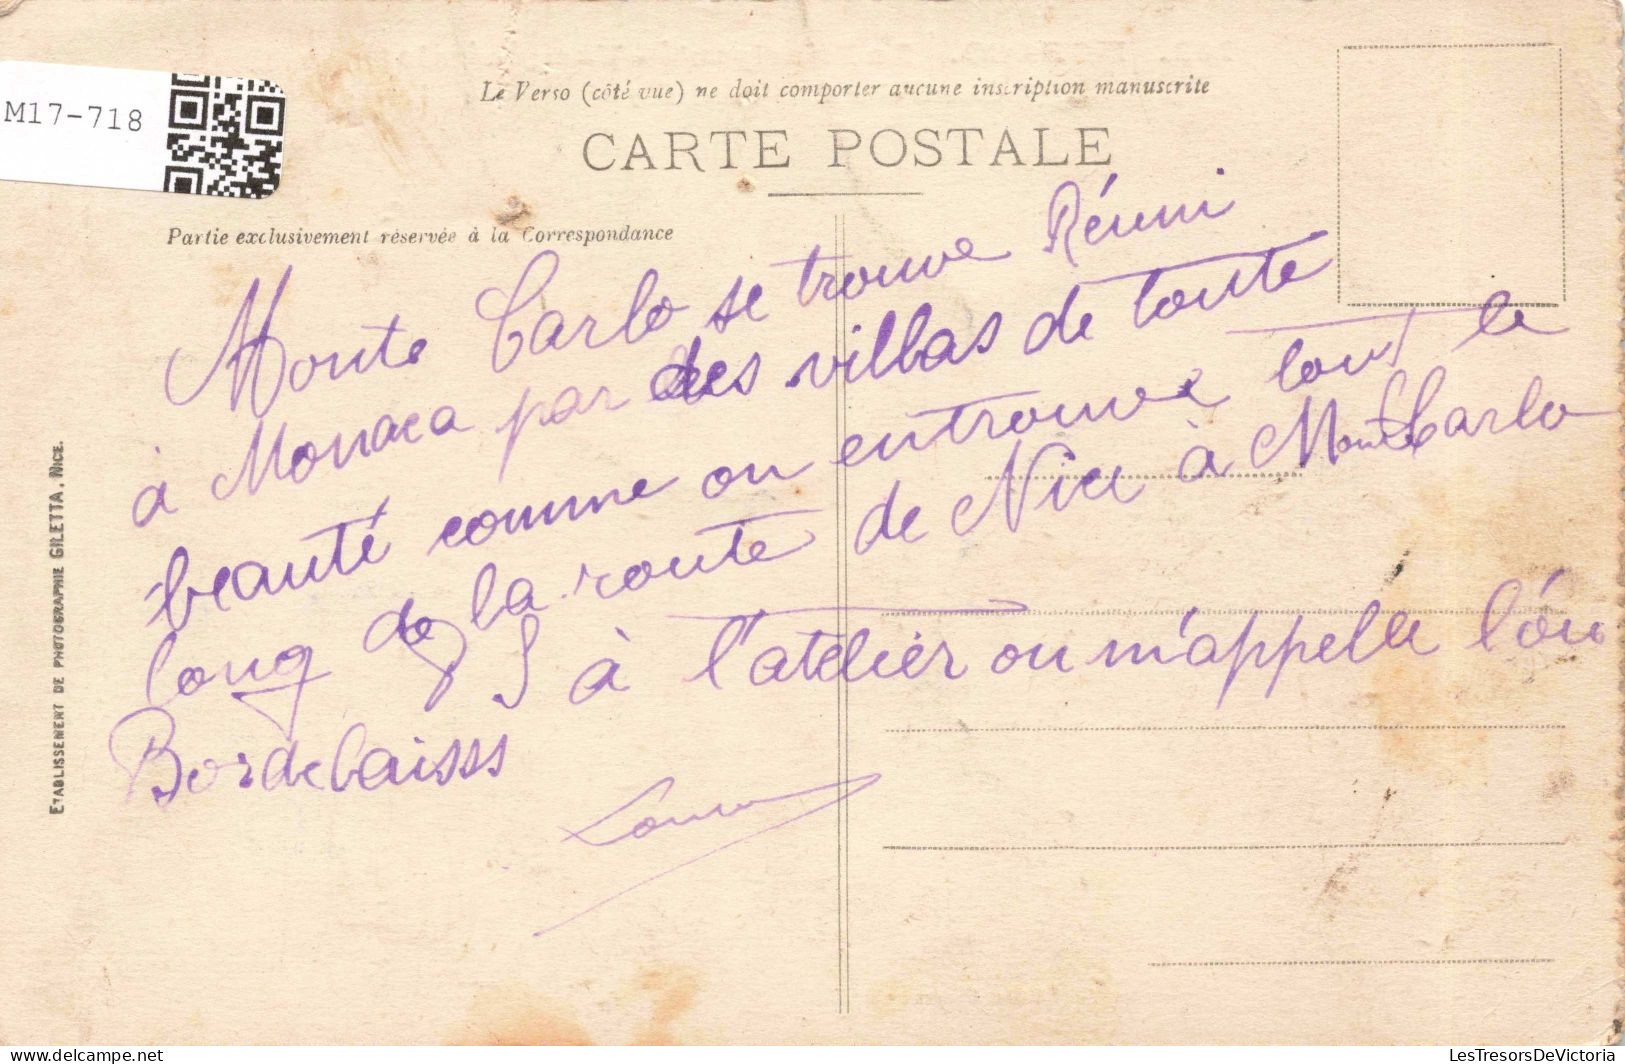 M17-718
Le Verso (côté vue) ne doit comporter aucune inscription manuscrite
CARTE POSTALE
Partie exclusivement réservée à la Correspondance
Monte Carlo se trouve Réuni
à Monaca par des villas de toute
beauté comme on entrouve tout le
long de la route de Nice à Monte Carlo
PS à l'atelier on m'appelle l'ou
Bordelaisss
ETABLISSEMENT DE PHOTOGRAPHIE GILETTA, NICE.
LesTresorsDeVictoria
delcampe.net